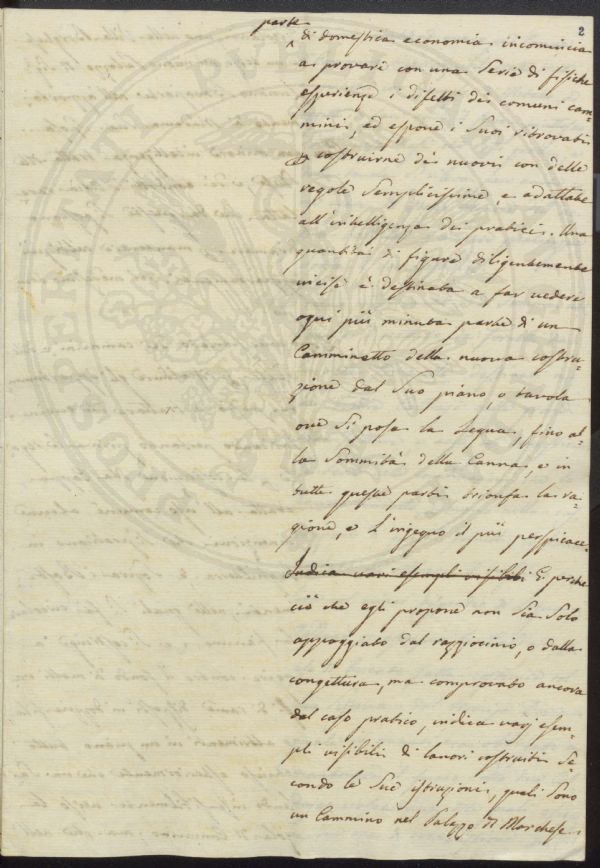 2
parte
di domestica economia incomincia
a provare con una serie di fisiche
esperienze i difetti dei comuni cam-
mini, ed espone i suoi ritrovati
costruirne dei nuovi con delle
regole semplicissime, e adattate
all'intelligenza dei pratici. Una
quantità di figure diligentemente
incise è destinata a far vedere
ogni più minuta parte di un
Camminetto della nuova costru-
zione dal suo piano, o tavola
ove si posa la Legna, fino al-
la sommità della Canna, e in
tutte queste parti trionfa la ra-
gione, e l'ingegno il più perspicace.
Indica vari esempli visibili E perche
ciò che egli propone non sia solo
appoggiato dal razziocinio, o dalla
congettura, ma comprovato ancora
dal caso pratico, indica varj esem-
pli visibili di lavori costruiti se-
condo le sue istruzioni, quali sono
un Cammino nel Palazzo Marchese